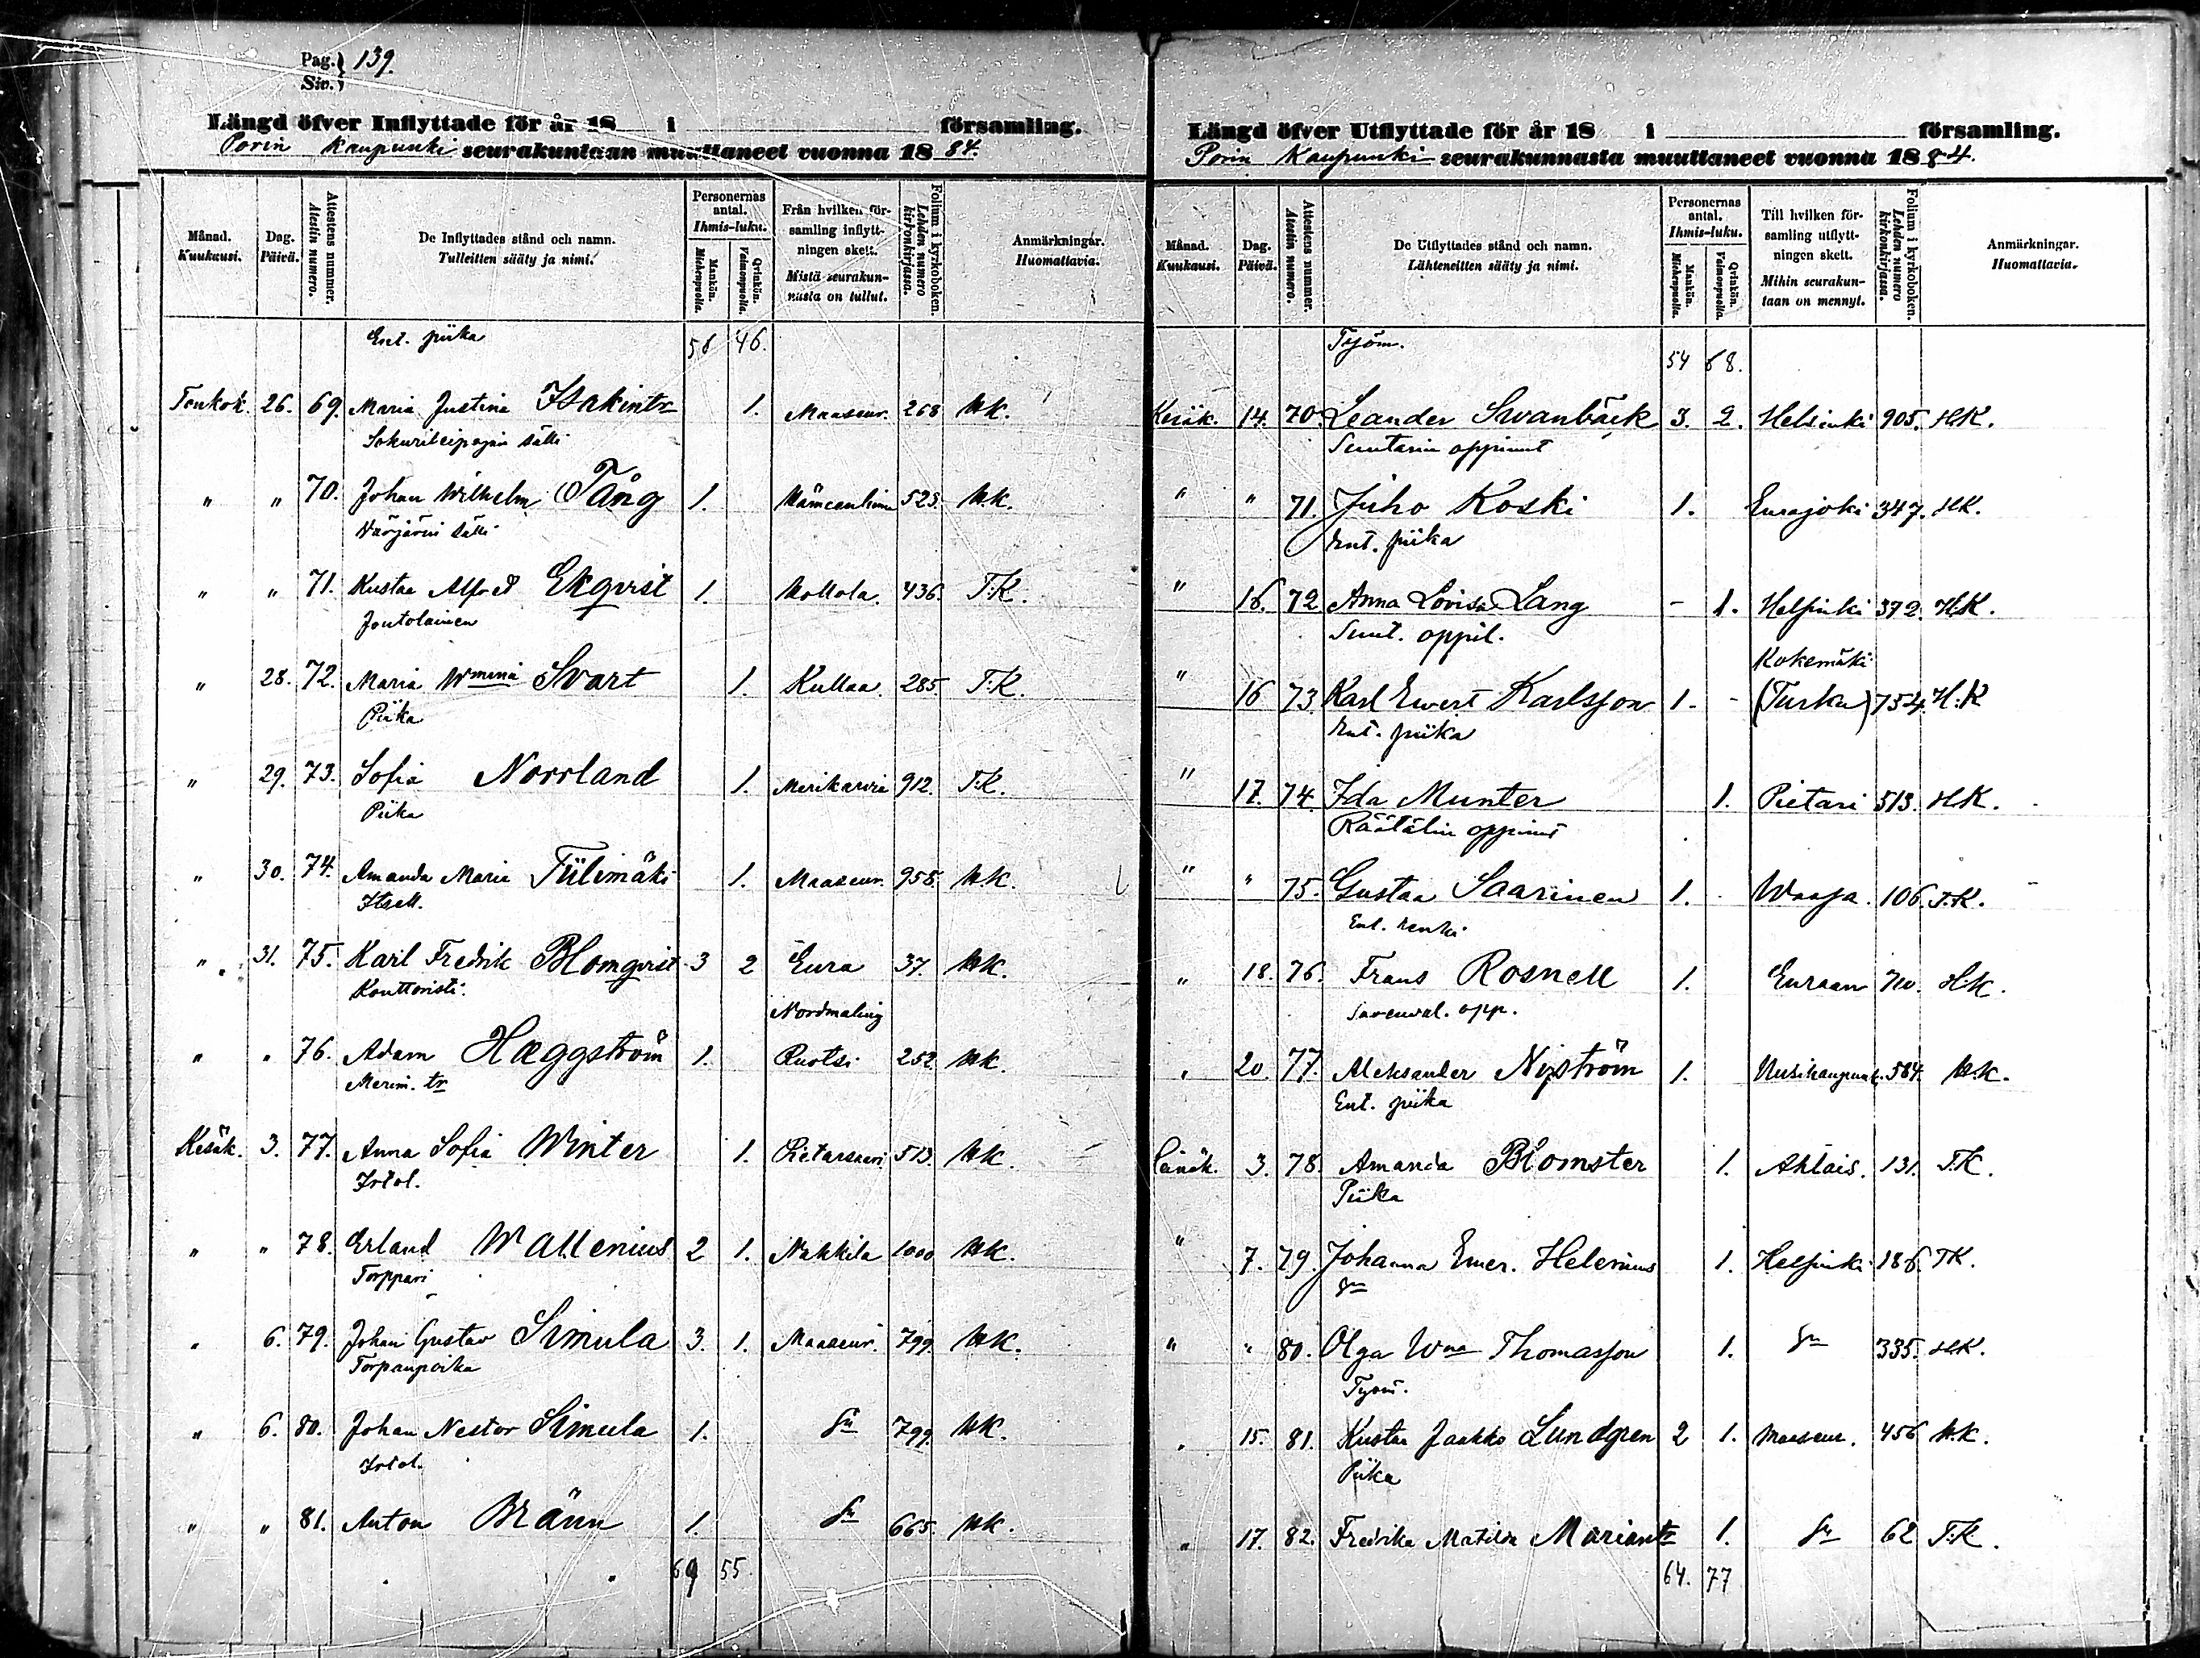 Pag. } 139.
Siv. }
Längd öfver Inflyttade för år 18 i församling.
Porin kaupunki seurakuntaan muuttaneet vuonna 1884.
Månad. Kuukausi. Dag. Päivä. Attestens nummer. Atestin numero. De Inflyttades stånd och namn. Tulleitten sääty ja nimi. Personernas antal. Ihmis-luku. Mankön. Miehenpuolia. Qvinkön. Vaimonpuolia. Från hvilken församling inflyttningen skett. Mistä seurakunnasta on tullut. Folium i kyrkoboken. Lehden numero kirkonkirjassa. Anmärkningar. Huomattavia.
Ent. piika 58 46.
Toukok. 26. 69. Maria Justina Isakintr 1. Maaseur. 268 HK.
Sokurileipojan sälli
" " 70. Johan Wilhelm Tång 1. Hämeenlinna 523. HK.
Värjärin sälli
" " 71. Kustaa Alfred Ekqvist 1. Hollola. 436. T.K.
Joutolainen
" 28. 72. Maria Wmina Svart 1. Kullaa. 285 T.K.
Piika
" 29. 73. Sofia Norrland 1. Merikarvia 912. T.K.
Piika
" 30. 74. Amanda Maria Tiilimäki 1. Maaseur. 958. HK.
Itsell.
" 31. 75. Karl Fredrik Blomqvist 3 2 Eura 37. HK.
Konttoristi. Nordmaling
" " 76. Adam Hæggström 1. Ruotsi 252 HK.
Merim. tr
Kesäk. 3. 77. Anna Sofia Winter 1. Pietarsaari 513. HK.
Irtol.
" " 78. Erland Wallenius 2 1. Nakkila 1000 HK.
Torppari
" 6. 79. Johan Gustav Simula 3. 1. Maaseur. 799. HK.
Torpanpoika
" 6. 80. Johan Nestor Simula 1. Sn 799. HK.
Irtol.
" " 81. Anton Bränn 1. Sn 665. HK.
69 55.
Längd öfver Utflyttade för år 18 i församling.
Porin Kaupunki seurakunnasta muuttaneet vuonna 1884.
Månad. Kuukausi. Dag. Päivä. Attestens nummer. Atestin numero. De Utflyttades stånd och namn. Lähteneitten sääty ja nimi. Personernas antal. Ihmis-luku. Mankön. Miehenpuolia. Qvinkön. Vaimonpuolia. Till hvilken församling utflyttningen skett. Mihin seurakuntaan on mennyt. Folium i kyrkoboken. Lehden numero kirkonkirjassa. Anmärkningar. Huomattavia.
Työm. 54 68.
Kesäk. 14. 70. Leander Swanbäck 3. 2. Helsinki 905. HK.
Suutarin oppinut
" " 71. Juho Koski 1. Eurajoki 347. HK.
Ent. piika
" 16. 72 Anna Lovisa Lang - 1. Helsinki 372. H.K.
Suut. oppil. Kokemäki
" 16 73. Karl Ewert Karlsson 1. - (Turku) 754. H.K
Ent. piika
" 17. 74. Ida Munter 1. Pietari 513. HK.
Räätälin oppinut
" " 75. Gustaa Saarinen 1. Waasa. 106. T.K.
Ent. renki
" 18. 76. Frans Rosnell 1. Euraan 710. HK.
Savenval. opp.
" 20. 77. Aleksander Nyström 1. Uusikaupunk. 584. H.K.
Ent. piika
3. 78. Amanda Blomster 1. Ahlais. 131. T.K.
Piika
" 7. 79. Johanna Emer. Helenius 1. Helsinki 186. TK.
Sn
" " 80. Olga Wna Thomasson 1. Sn 335. HK.
Työm.
" 15. 81. Kustaa Jaakko Lundgren 2 1. Maaseur. 456 H.K.
Piika
" 17. 82. Fredrika Matilda Mariantr 1. Sn 62 T.K.
64. 77